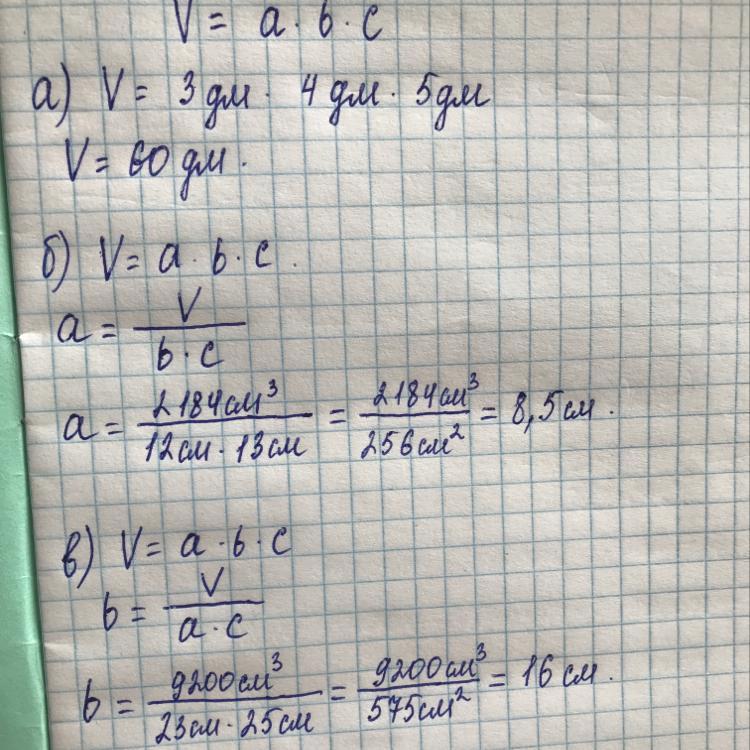 V = a · b · c
а) V = 3 дм · 4 дм · 5 дм
V = 60 дм.
б) V = a · b · c.
a = V / b · c
a = 2184 см³ / 12 см · 13 см = 2184 см³ / 256 см² = 8,5 см.
в) V = a · b · c
b = V / a · c
b = 9200 см³ / 23 см · 25 см = 9200 см³ / 575 см² = 16 см.